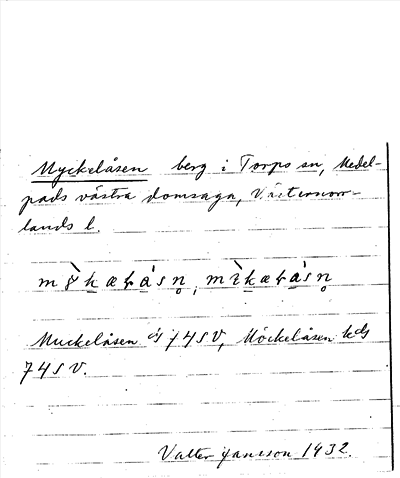 Myckelåsen berg i Torps sn, Medel-
pads västra domsaga, Västernorr-
lands l.
Muckelåsen 74 S V, Möckelåsen
74 S V.
Valter Jansson 1932.